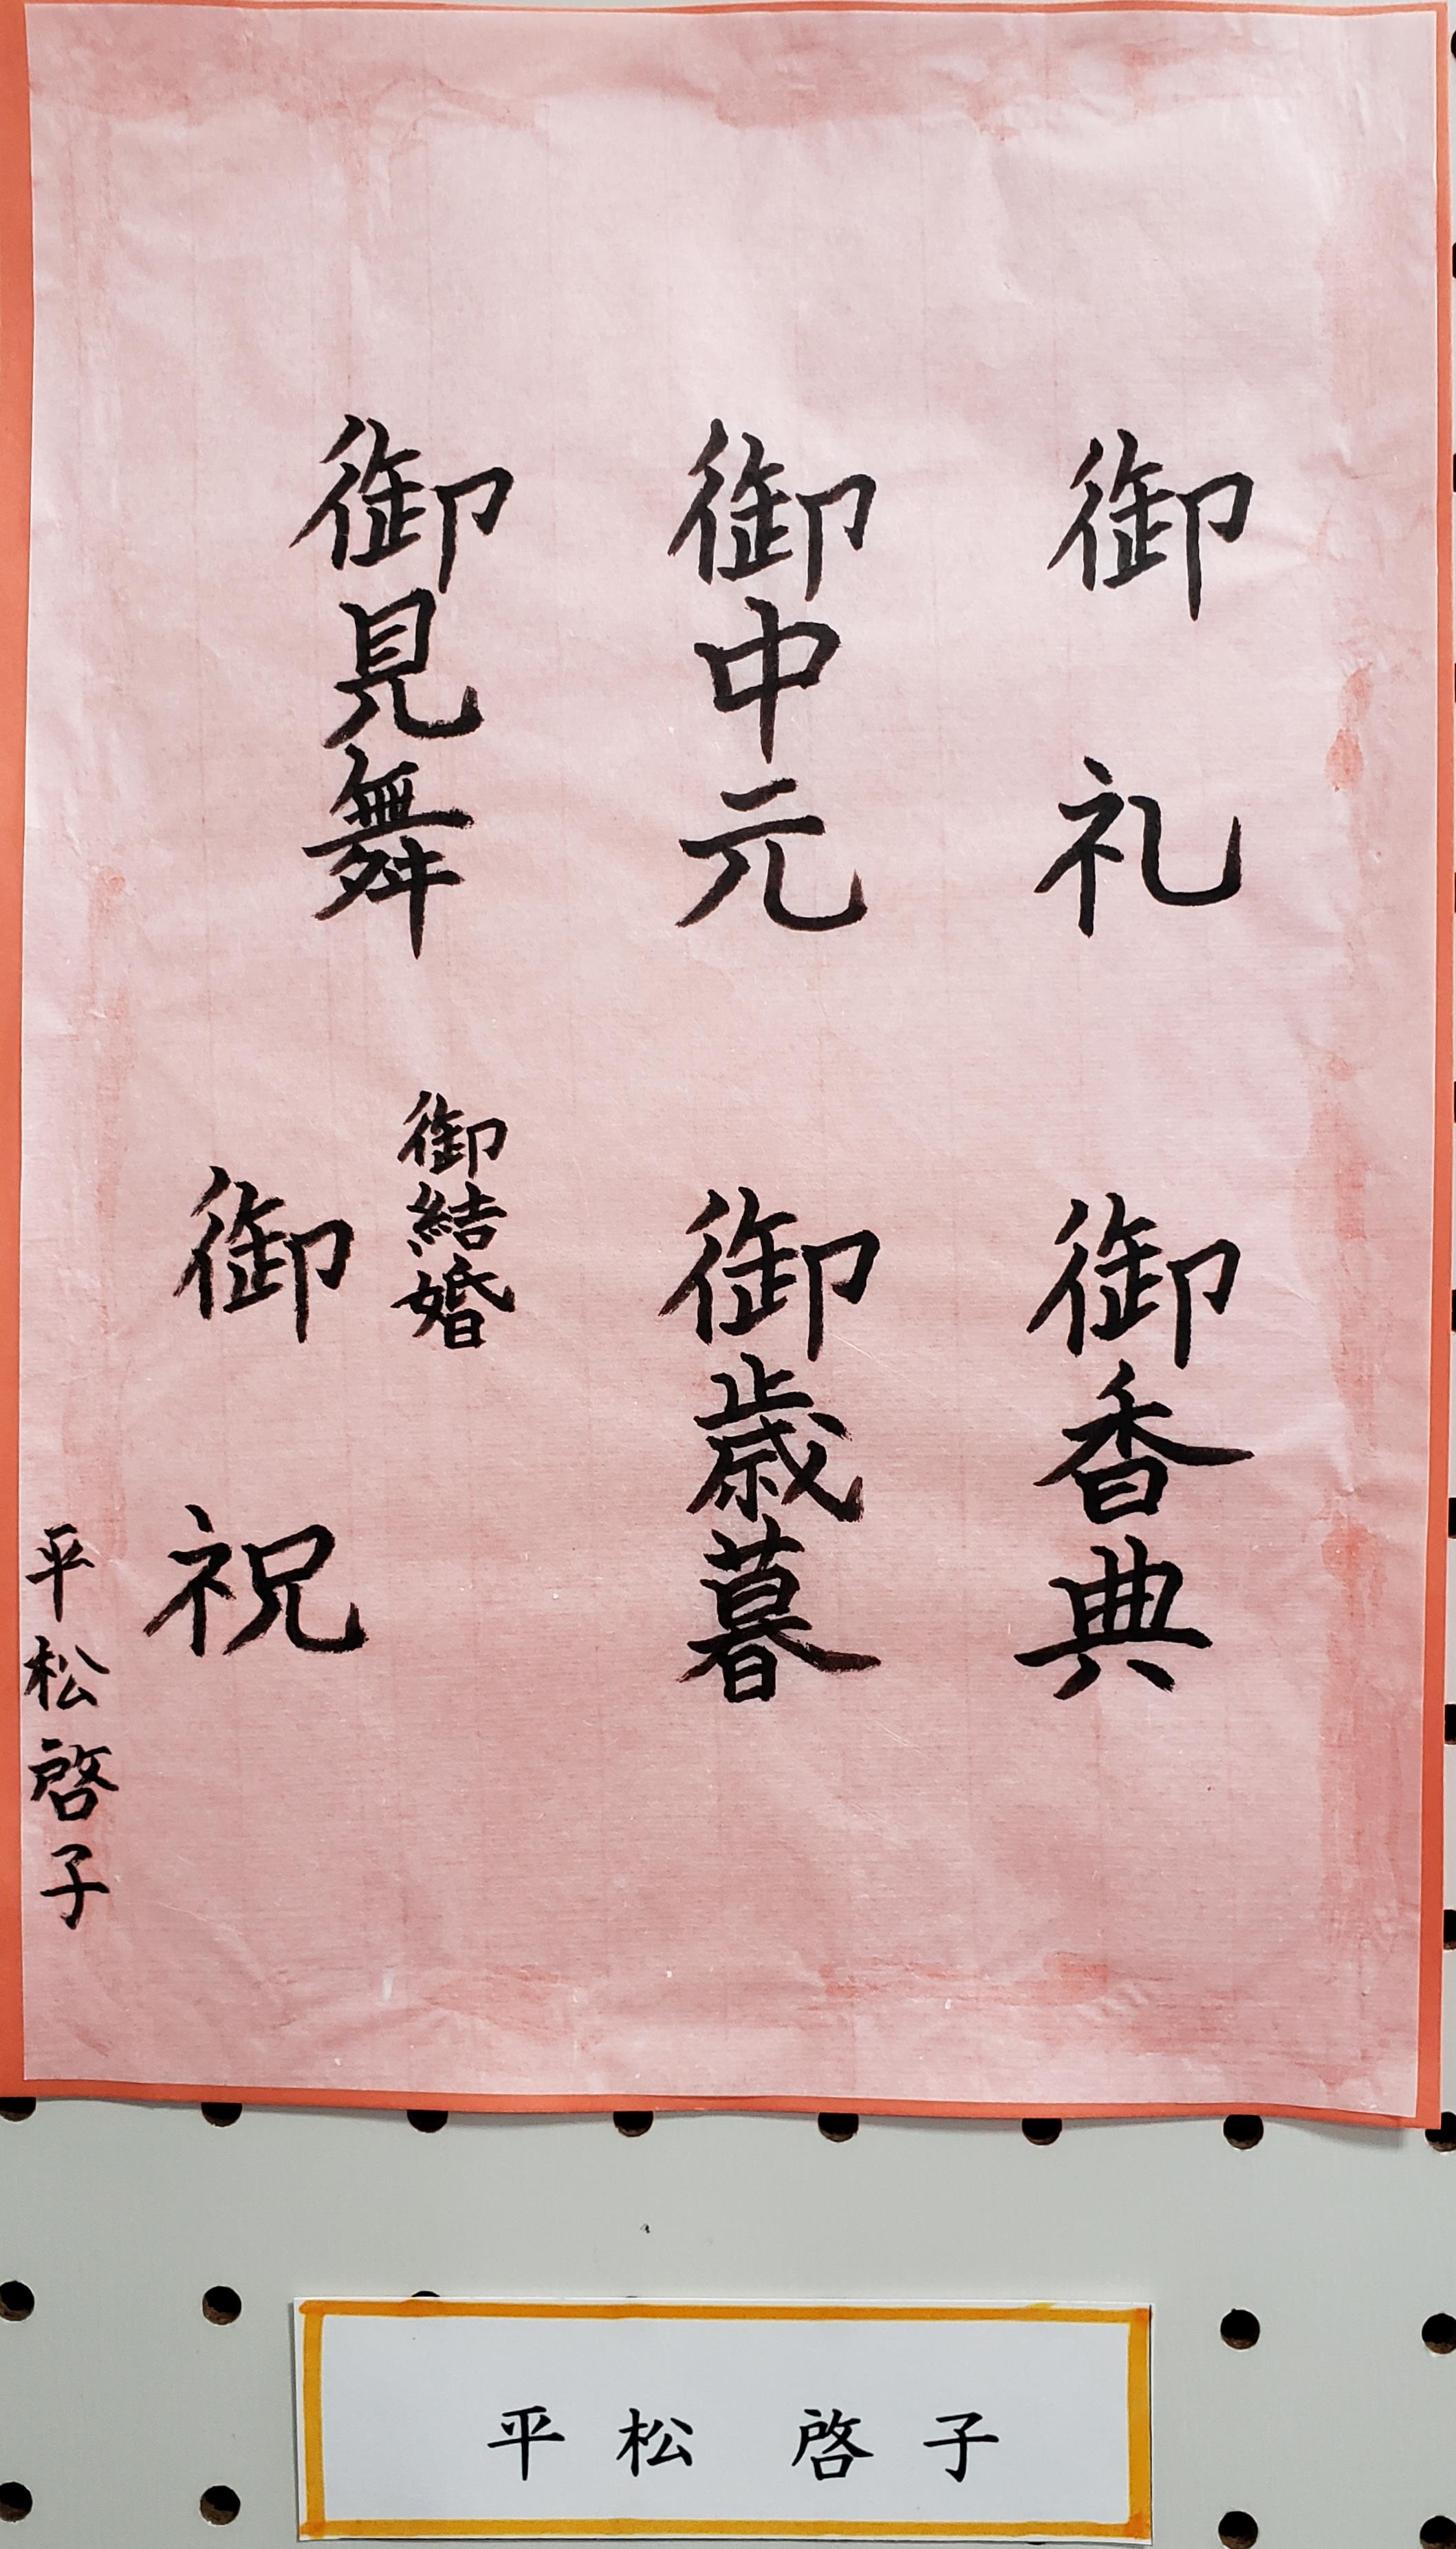 御礼
御香典
御中元
御歳暮
御見舞
御結婚
御祝
平松啓子
平松 啓子